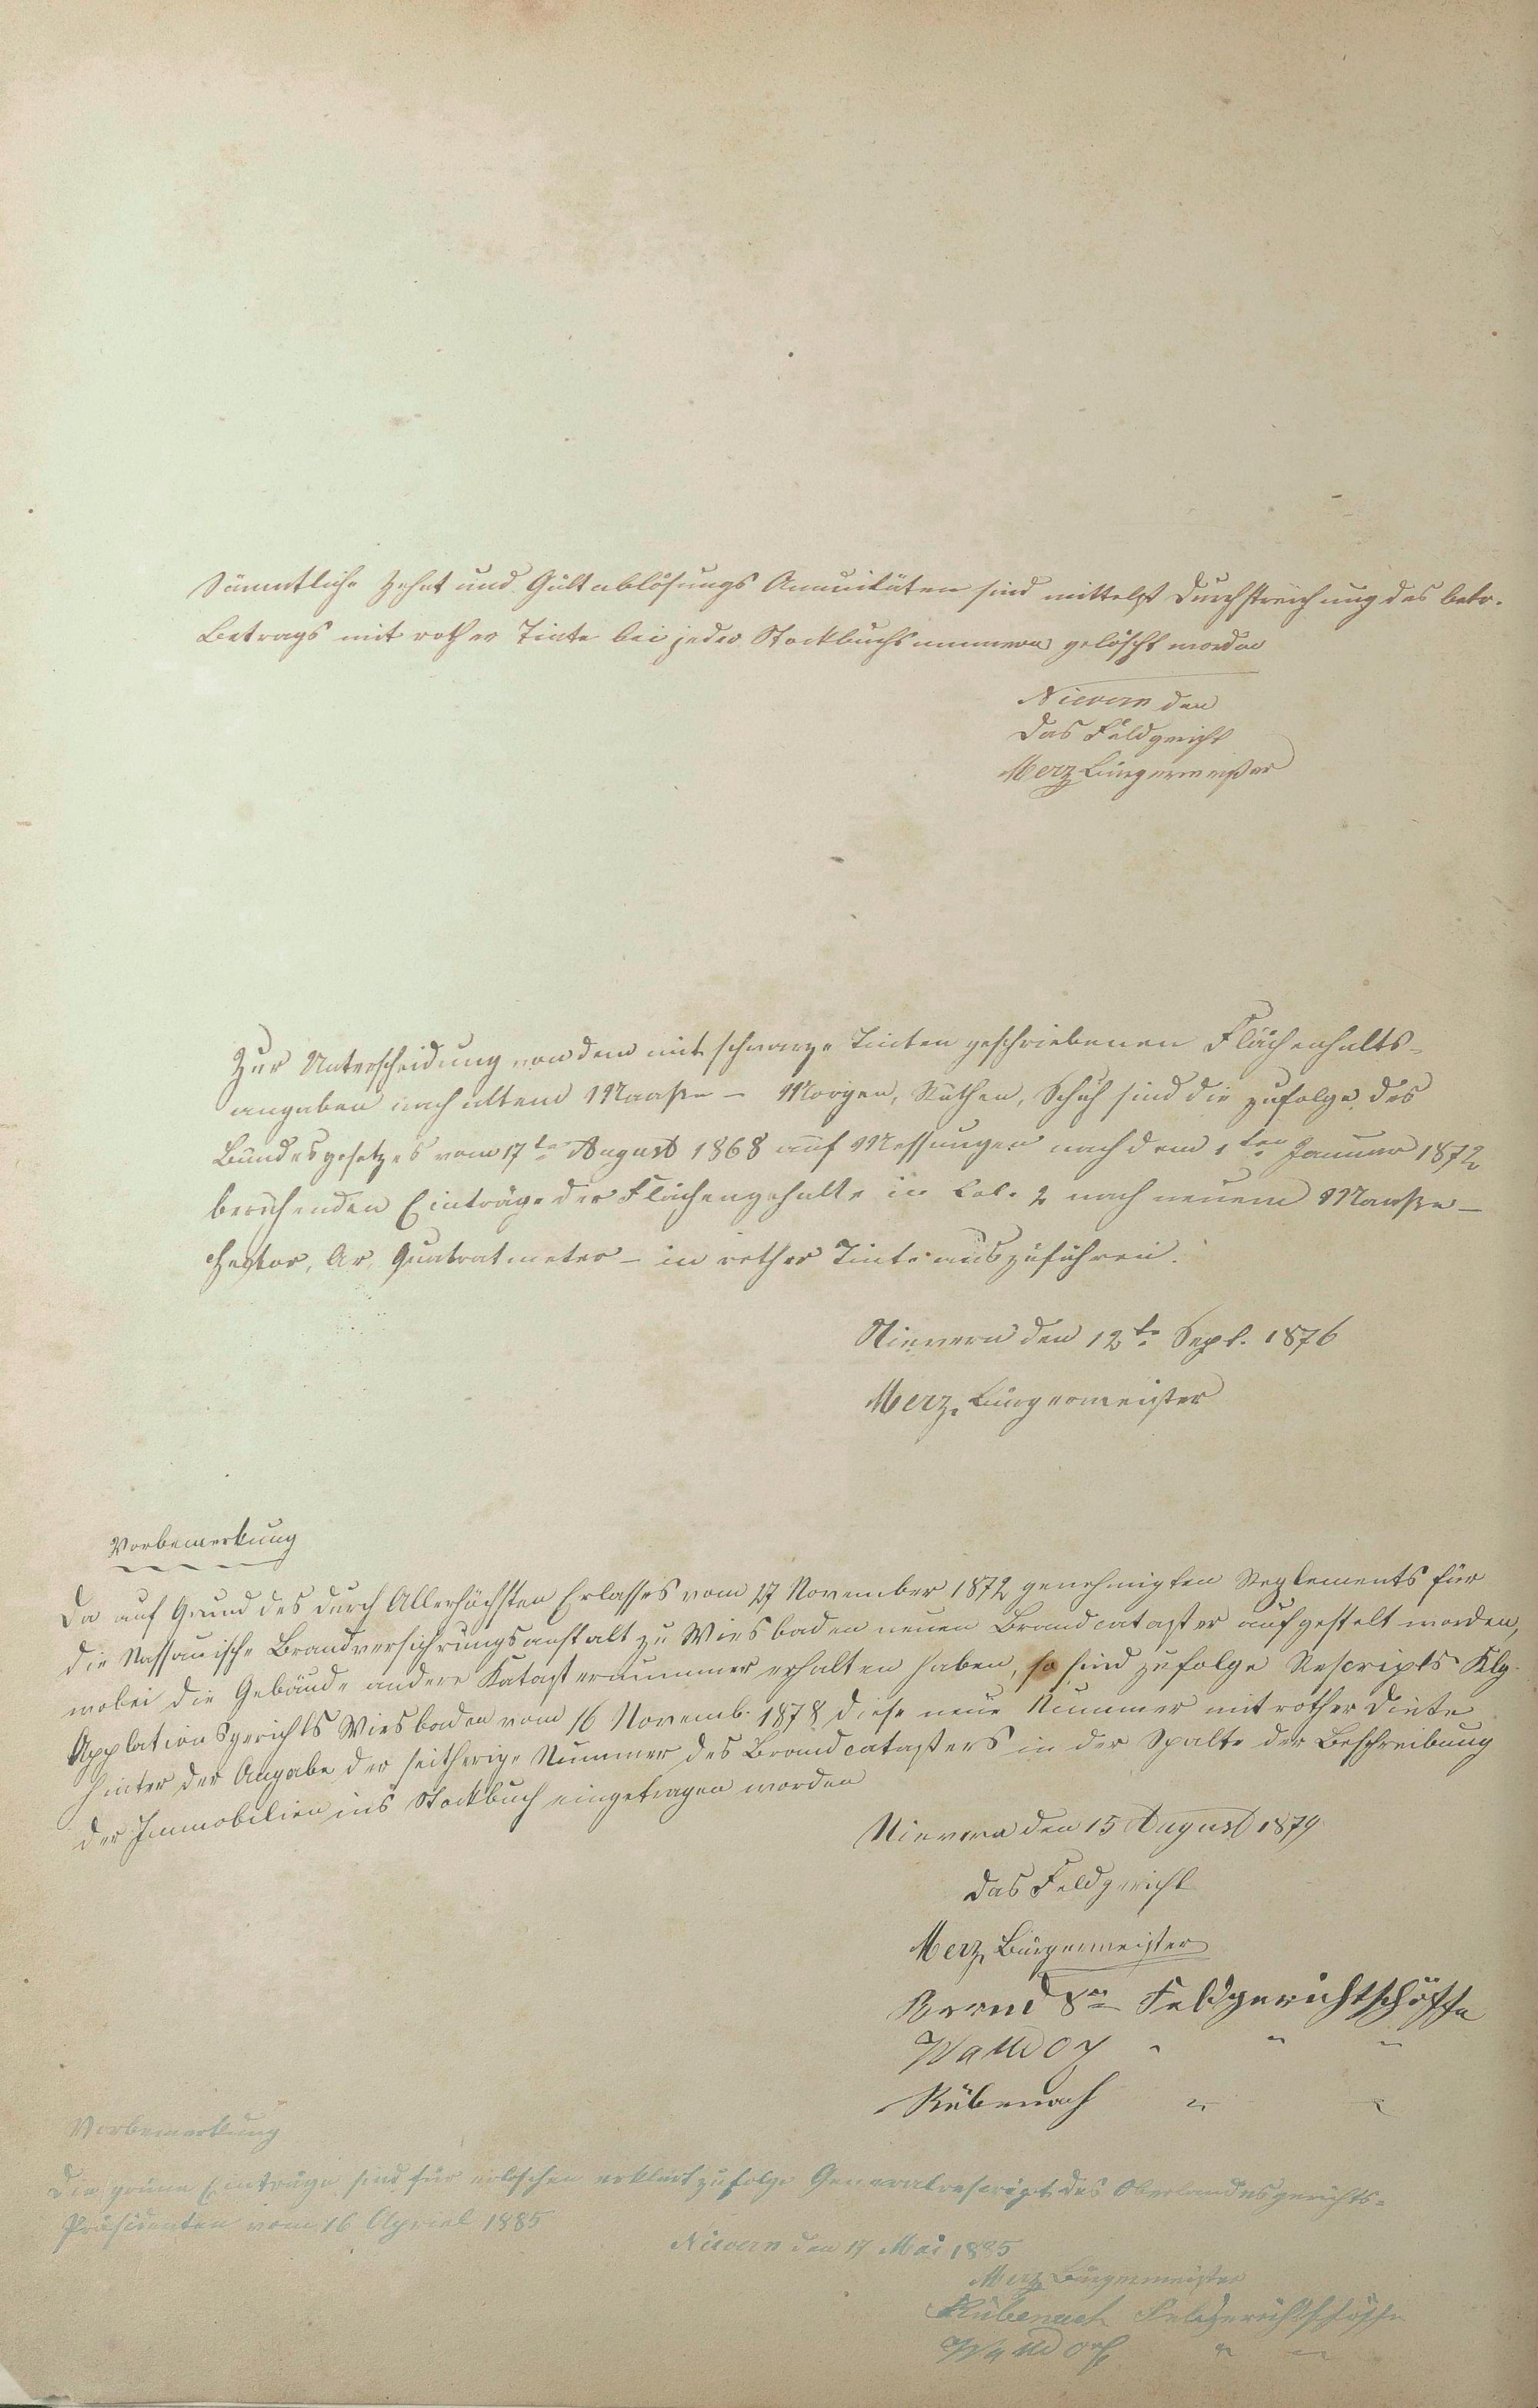 Sämmtliche Zehnt und Gültablösungs Annuitäten sind mittelst Durchstreichung des betr.
Betrags mit rother Tinte bei jeder Stockbuchsnummer gelöscht worden
Nievern den
Das Feldgericht
Merz Bürgermeister
Zur Unterscheidung von den mit schwarze Tinten geschriebenen Flächenhalts-
angaben nach altem Maaße - Morgen, Ruthen, Schuh sind die zufolge des
Bundesgesetzes vom 17te August 1868 auf Messungen nach dem 1ten Januar 1872
beruhenden Einträge der Flächengehalte in Col. 2 nach neuem Maaße -
Hectar, Ar, Quatratmeter - in rother Tinte auszuführen.
Nievern den 12te Sept. 1876
Merz, Bürgermeister
Vorbemerkung
Da auf Grund des durch Allerhöchsten Erlasses vom 27 November 1872 genehmigten Reglements für
die Nassauische Brandversichrungsanstalt zu Wiesbaden neuen Brandcataster aufgestelt worden,
wobei die Gebäude andere Katasternummer erhalten haben, so sind zufolge Rescripts Klg.
Applationsgerichts Wiesbaden vom 16 Novemb. 1878 diese neue Nummer mit rother Dinte
hinter der Angabe der seitherige Nummer des Brandcatasters in der Spalte der Beschreibung
der Immobilien ins Stockbuch eingetragen worden
Nievern den 15 August 1879
Das Feldgericht
Merz, Bürgermeister
Feldgerichtschöffe
" "
Rübenach " "
Vorbemerkung
Die grüne Einträge sind für erloschen erklärt zufolge Generalrescript des Oberlandesgerichts-
Präsidenten vom 16 Apriel 1885
Nievern den 17 Mai 1885
Merz Bürgermeister
Rübenach Feldgerichtschöffe
" "